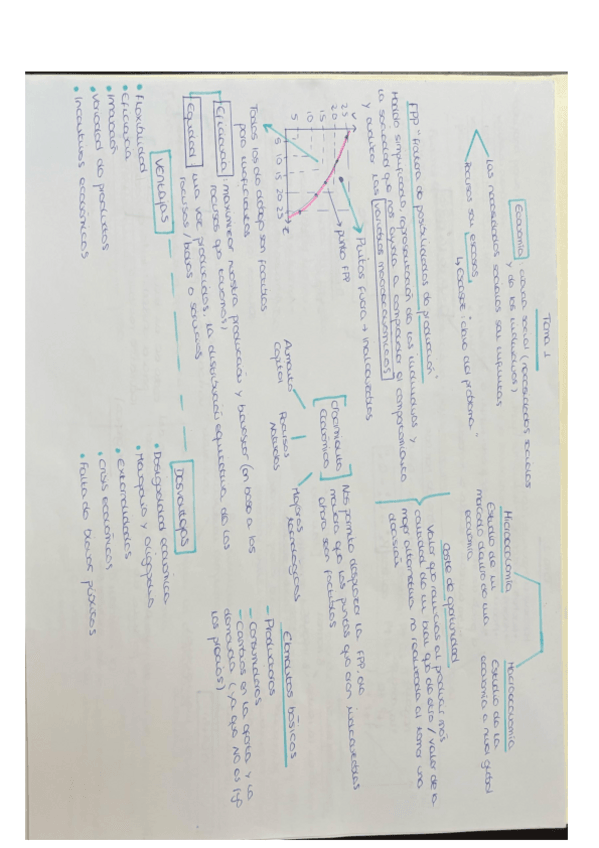 Tema 1
Economía ciencia social (necesidades sociales
y de los individuos)
Las necesidades sociales son infinitas
Recursos son escasos
↳ Escasez "clave del problema"
Microeconomía
Estudio de un
mercado dentro de una
economía
Macroeconomía
Estudio de la
economía a nivel global
FPP "Frontera de posibilidades de producción"
Modelo simplificado, representación de los individuos y
la sociedad que nos ayuda a comprender el comportamiento
y analizar las variables macroeconómicas
Coste de oportunidad
Valor que renuncias al producir más
cantidad de un bien que de otro / valor de la
mejor alternativa no realizada al tomar una
decisión
V
25
20
15
10
5
5 10 15 20 25 C
Puntos fuera → inalcanzables
punto FPP
Todos los de debajo son factibles
pero ineficientes
Crecimiento
económico
Nos permite desplazar la FPP, de
manera que los puntos que eran inalcanzables
ahora son factibles
Aumento
capital
Recursos
naturales
Mejoras
tecnológicas
Eficiencia maximizar nuestra producción y bienestar (en base a los
recursos que tenemos)
Equidad una vez producidos, la distribución equitativa de los
recursos / bienes o servicios
Elementos básicos
- Productores
- Consumidores
- Cambios en la oferta y la
demanda (ya que no es fijo
los precios)
Ventajas
• Flexibilidad
• Eficiencia
• Innovación
• Variedad de productos
• Incentivos económicos
Desventajas
• Desigualdad económica
• Monopolio y oligopolio
• Externalidades
• Crisis económicas
• Falta de bienes públicos